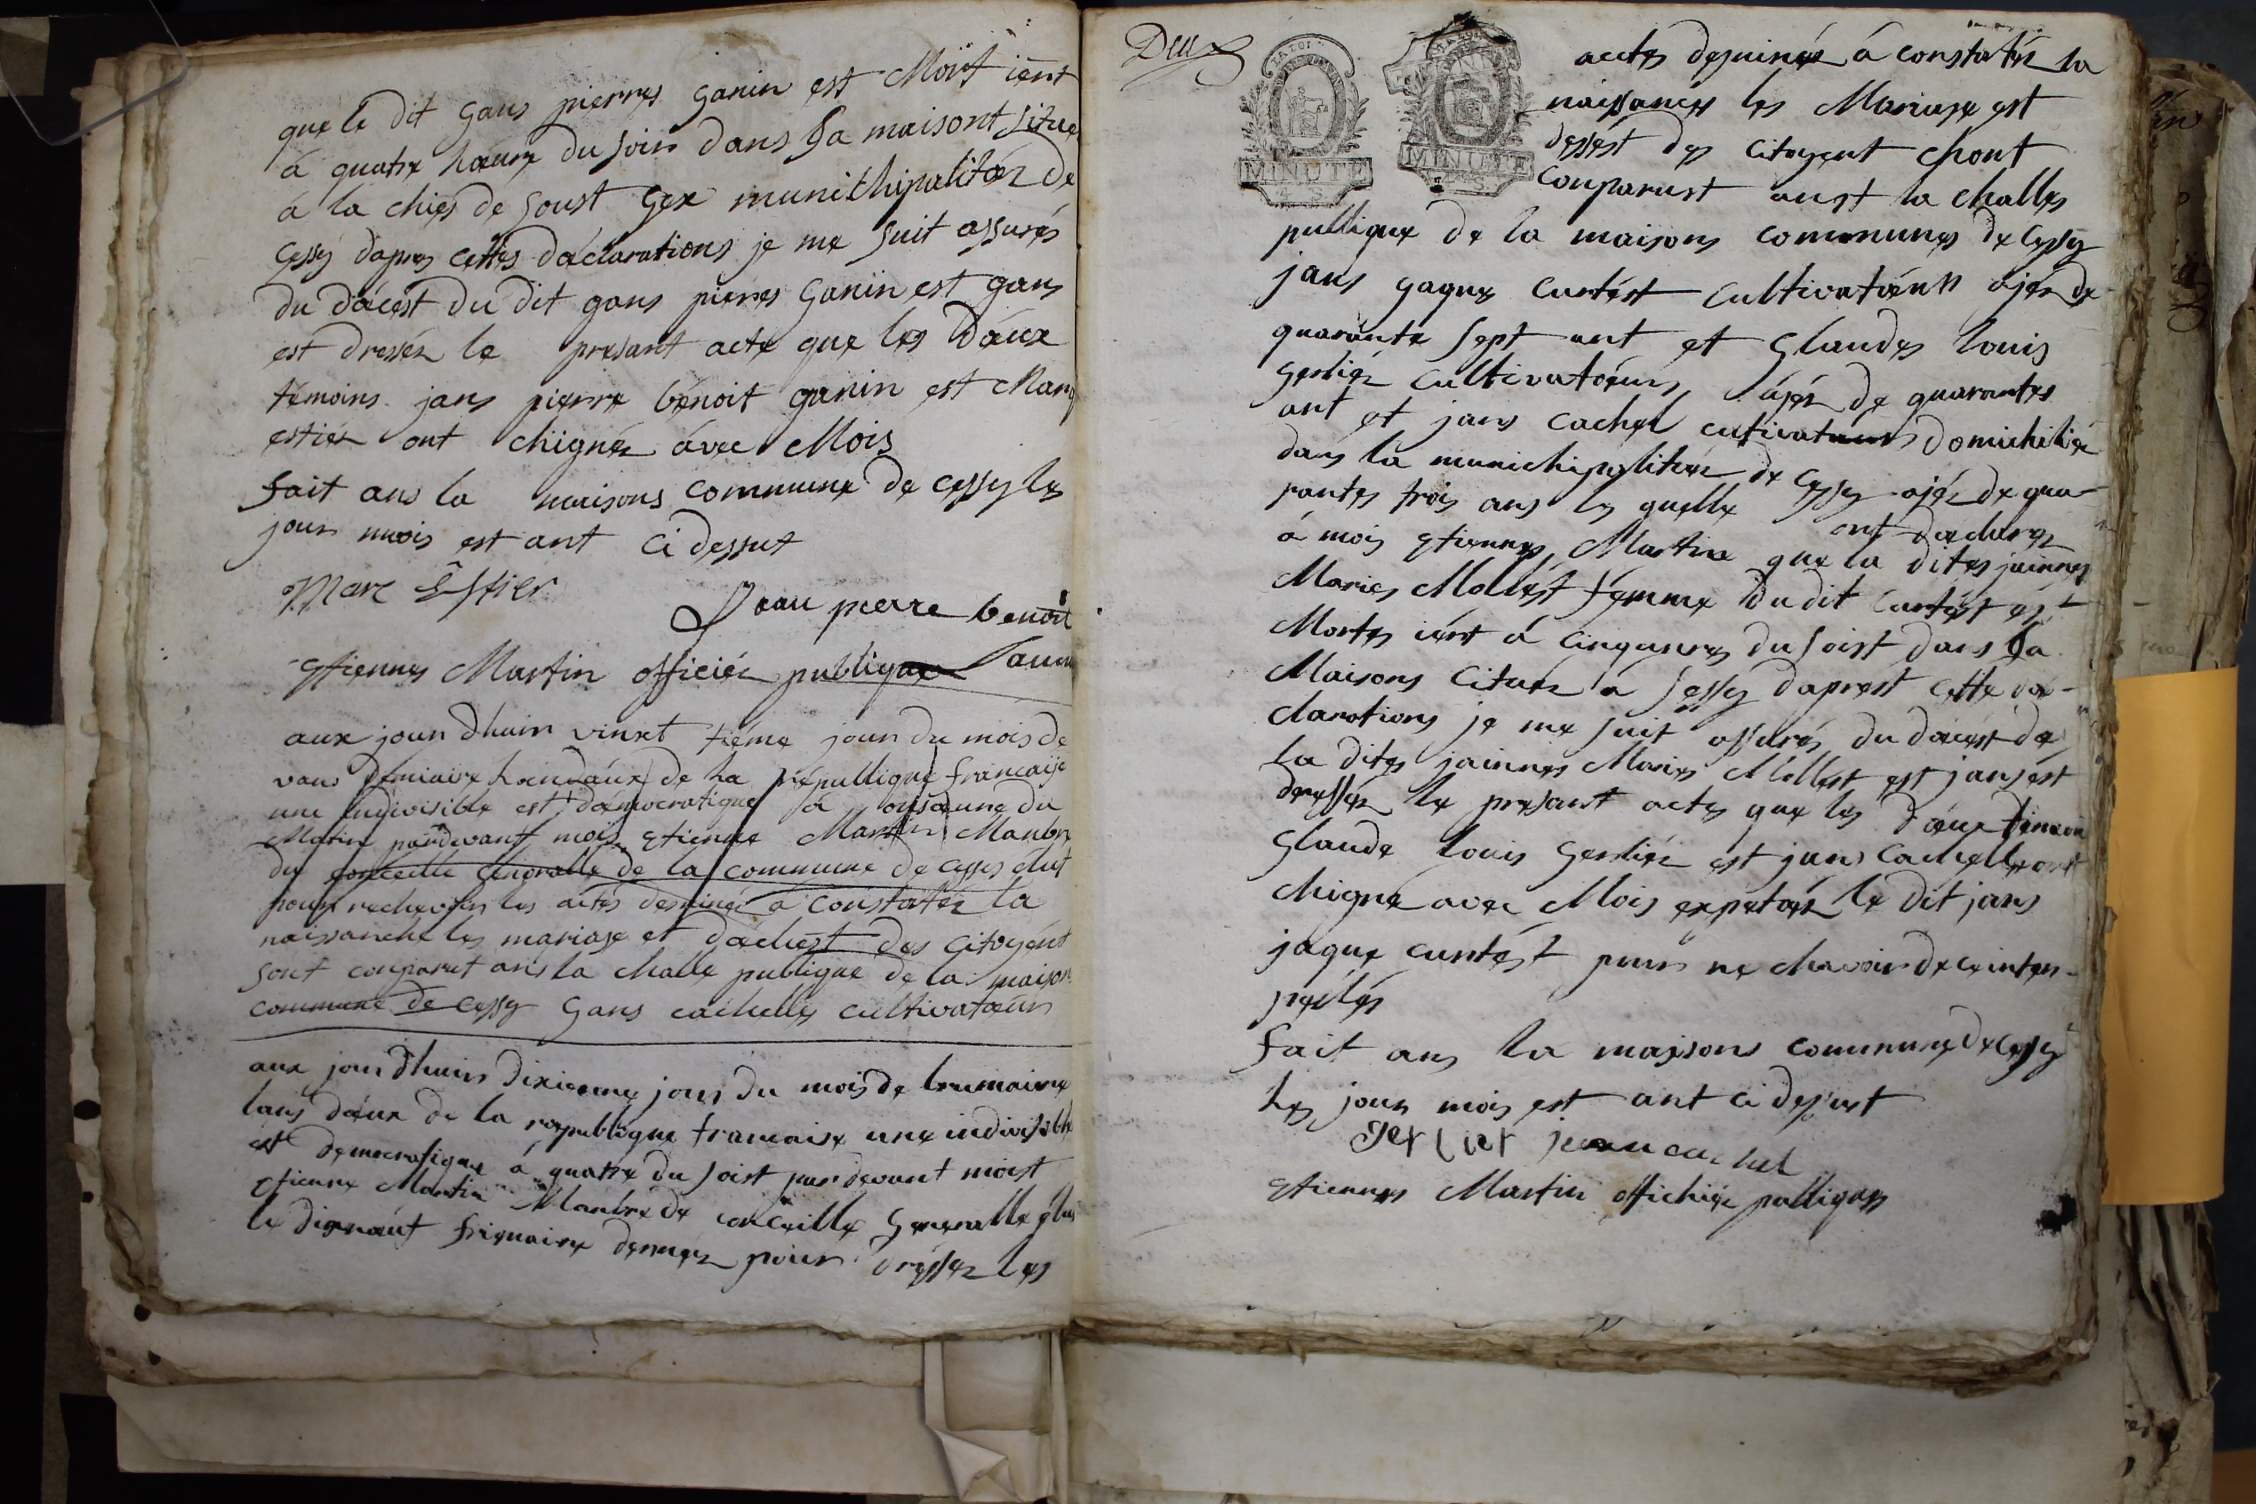 que le dit gans pierres ganin est Mort ient
à quatre hœure du soir dans sa maisont situe
à la chies de soust Gex munithipalitœz de
Cessy dapres cettes dæclarations je me suit assurés
du dæcest du dit gans pierres Ganin est gans
est dressez le presant acte que les dæux
témoins jans pierre bénoit ganin est Marq
estiez ont chignéz àvec Mois
fait ans la maisons commune de cessy les
jour mois est ant ci dessut
Marc Estier
Jean pierre benoit
Etiennes Martin officiéz publique
aux jour dhuir vinxt tiéme jour du mois de
vans démiaire lan dæux de la républiqué francaise
une indivisible est dæmocratique à
Matin pardevant mois Etienne Martin Manbre
du conceille Gennralle de la commune de cesses élut
pour rechevoir les actes desniné a constatéz la
naissanche les mariase et dæchest des citoyént
sont conparut ans la challe publique de la maison
commune de cessy Gans cachelles cultivatœur
aux jour dhuirs dixieme jour du mois de brumaire
lans dœux de la rœpublique francaise une indivisible
est démocratique à quatre du soist pardevant moist
Etienne Martin Manbre de conceille Generalle élus
le dignœut frignaire dernier pour dréssez les
Deux
LA LOI
MINUTE
MINUTE
actes desninés à constatés la
naissances les Mariase est
dessést des citoyent chont
Conparust anst la challes
pullique de la maisons communes de Cessy
jans gaques curtést cultivatœur àjéz de
quarante sept ant et Glaudes louis
Gerliéz cultivatœurs àjéz de quarantes
ant et jans cachel cutivateurs domichiliéz
dans la munichipalitœz de Cessy ajéz de qua-
rantes trois ans les quelle ont dæclarez
à mois Etiennes Martin que la dites jainnes
Maries Mollést fémme du dit curtést ést
Mortes iért à cinqueures du soist dans sa
Maisons Cituez a Sessy daprest cette dæ-
clarations je me suit assurés du dæcést de
la dites jainnes Maries Mollest est jans ést
dressér le presant actes que les dœux témoin
Glaude louis Gerliéz est jans cachelle ont
chigné avec Mois expetœz le dit jans
jaque curtést pour ne chavoir de ce inter-
peclés
fait ans la maisons communes de Cessy
les jour mois est ant ci desust
gerlier jean cachel
Etiennes Martin offichiéz pulliques